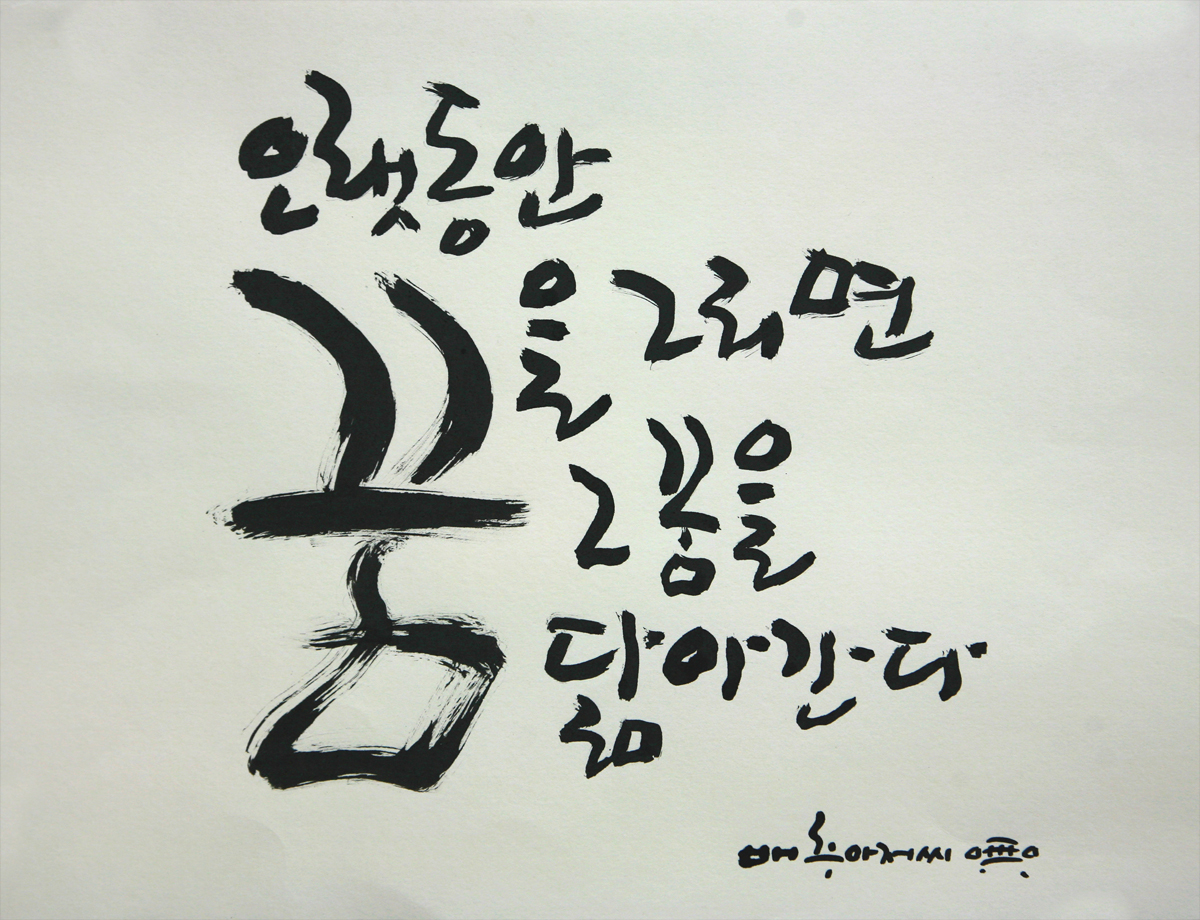 오랫동안
꿈을 그리면
그 꿈을
닮아간다
배추아저씨